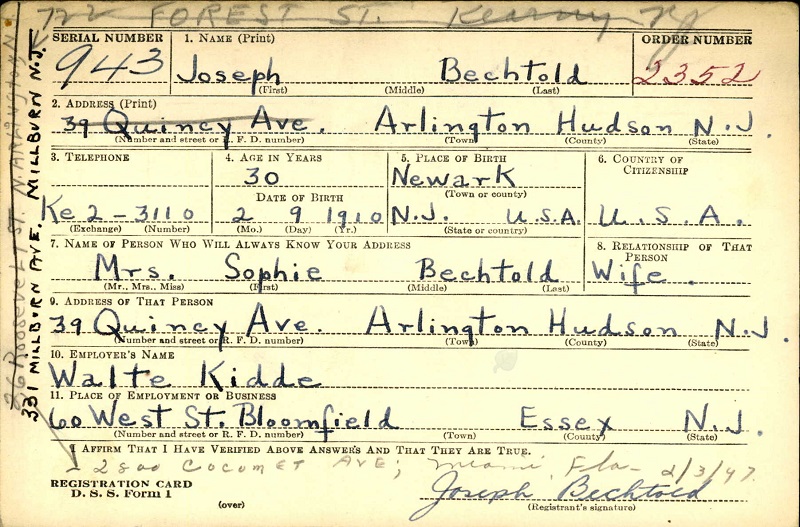 722 FOREST ST. Kearny NJ
SERIAL NUMBER 1. NAME (Print) ORDER NUMBER
943 Joseph Bechtold 2352
(First) (Middle) (Last)
2. ADDRESS (Print)
39 Quincy Ave. Arlington Hudson N.J.
(Number and street or R. F. D. number) (Town) (County) (State)
3. TELEPHONE 4. AGE IN YEARS 5. PLACE OF BIRTH 6. COUNTRY OF CITIZENSHIP
30 Newark
DATE OF BIRTH (Town or county)
Ke 2-3110 2 9 1910 N.J. U.S.A. U.S.A.
(Exchange) (Number) (Mo.) (Day) (Yr.) (State or country)
7. NAME OF PERSON WHO WILL ALWAYS KNOW YOUR ADDRESS 8. RELATIONSHIP OF THAT PERSON
Mrs. Sophie Bechtold Wife.
(Mr., Mrs., Miss) (First) (Middle) (Last)
9. ADDRESS OF THAT PERSON
39 Quincy Ave. Arlington Hudson N.J.
(Number and street or R. F. D. number) (Town) (County) (State)
10. EMPLOYER'S NAME
Walte Kidde
11. PLACE OF EMPLOYMENT OR BUSINESS
60 West St. Bloomfield Essex N.J.
(Number and street or R. F. D. number) (Town) (County) (State)
I AFFIRM THAT I HAVE VERIFIED ABOVE ANSWERS AND THAT THEY ARE TRUE.
2800 Cocomet AVE; Miami, Fla- 2/3/47
REGISTRATION CARD
D. S. S. Form 1 Joseph Bechtold
(over) (Registrant's signature)
26 Roosevelt ST. N. ARLINGTON N
331 MILLBURN AVE. MILLBURN N.J.